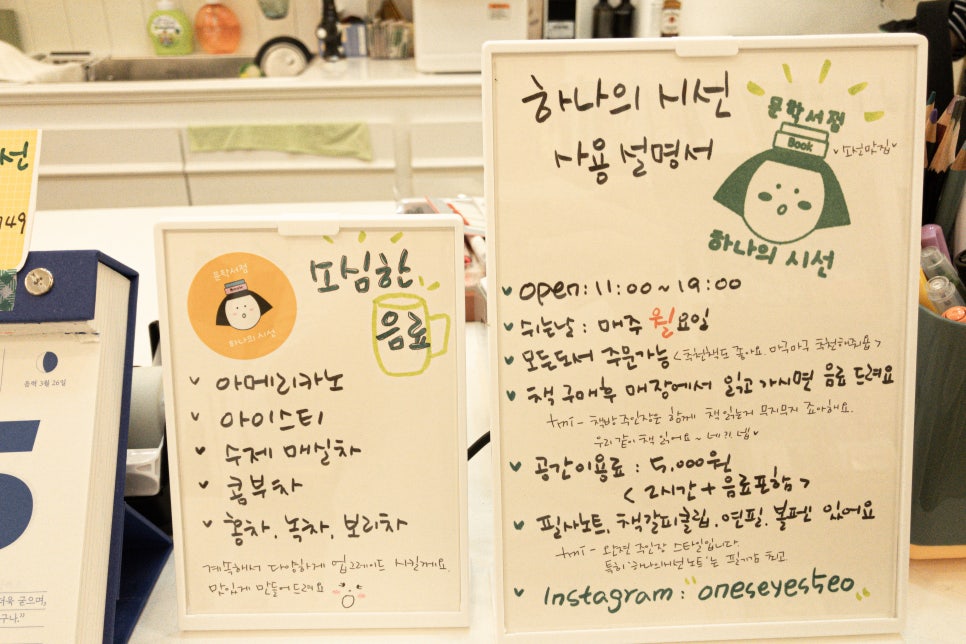 선
음력 3월 26일
문학서점
하나의 시선
소심한
음료
아메리카노
아이스티
수제 매실차
콤부차
홍차, 녹차, 보리차
계속해서 다양하게 업그레이드 시킬게요.
맛있게 만들어드려요
하나의 시선
사용 설명서
문학서점
Book
소선맛집
하나의 시선
open: 11:00 ~ 19:00
쉬는날 : 매주 월요일
모든도서 주문가능 <추천책도 좋아요. 마구마구 추천해줘용>
책 구매후 매장에서 읽고 가시면 음료 드려요
tmi - 책방 주인장은 함께 책 읽는거 무지무지 죠아해요.
우리같이 책 읽어요~ 네?! 넵
공간이용료 : 5,000원
< 2시간 + 음료포함 >
필사노트, 책갈피클립, 연필, 볼펜 있어요
tmi - 완전 주인장 스타일입니다.
특히 '하나의시선노트'는 필기감 최고
Instagram : oneseyeseo